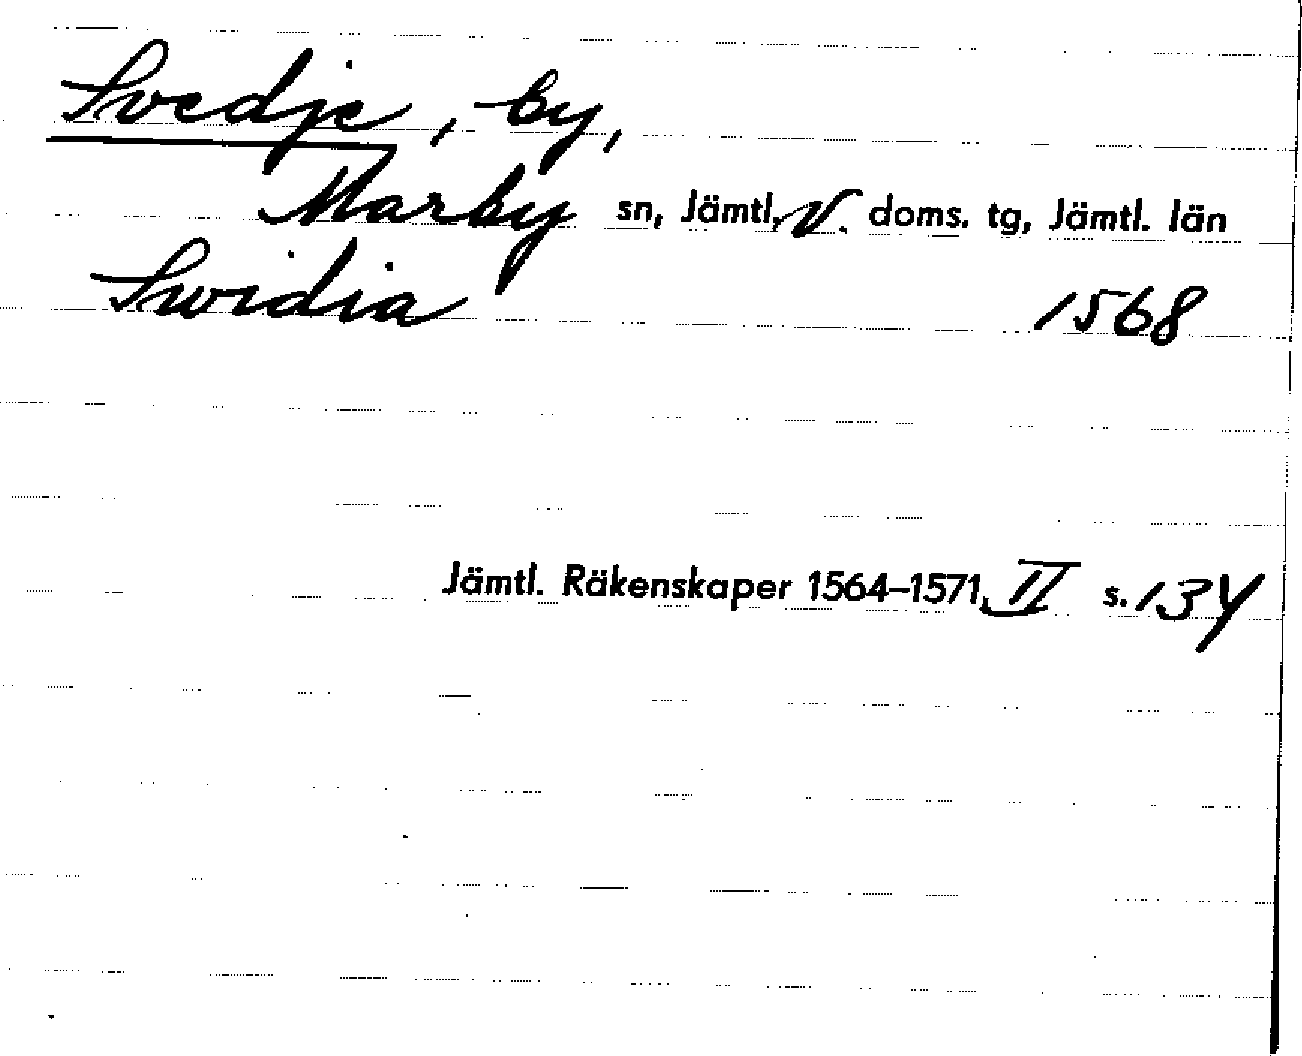 Svedje, by,
Marby sn, Jämtl. V. doms. tg, Jämtl. län
Swidia 1568
Jämtl. Räkenskaper 1564–1571, II s. 134